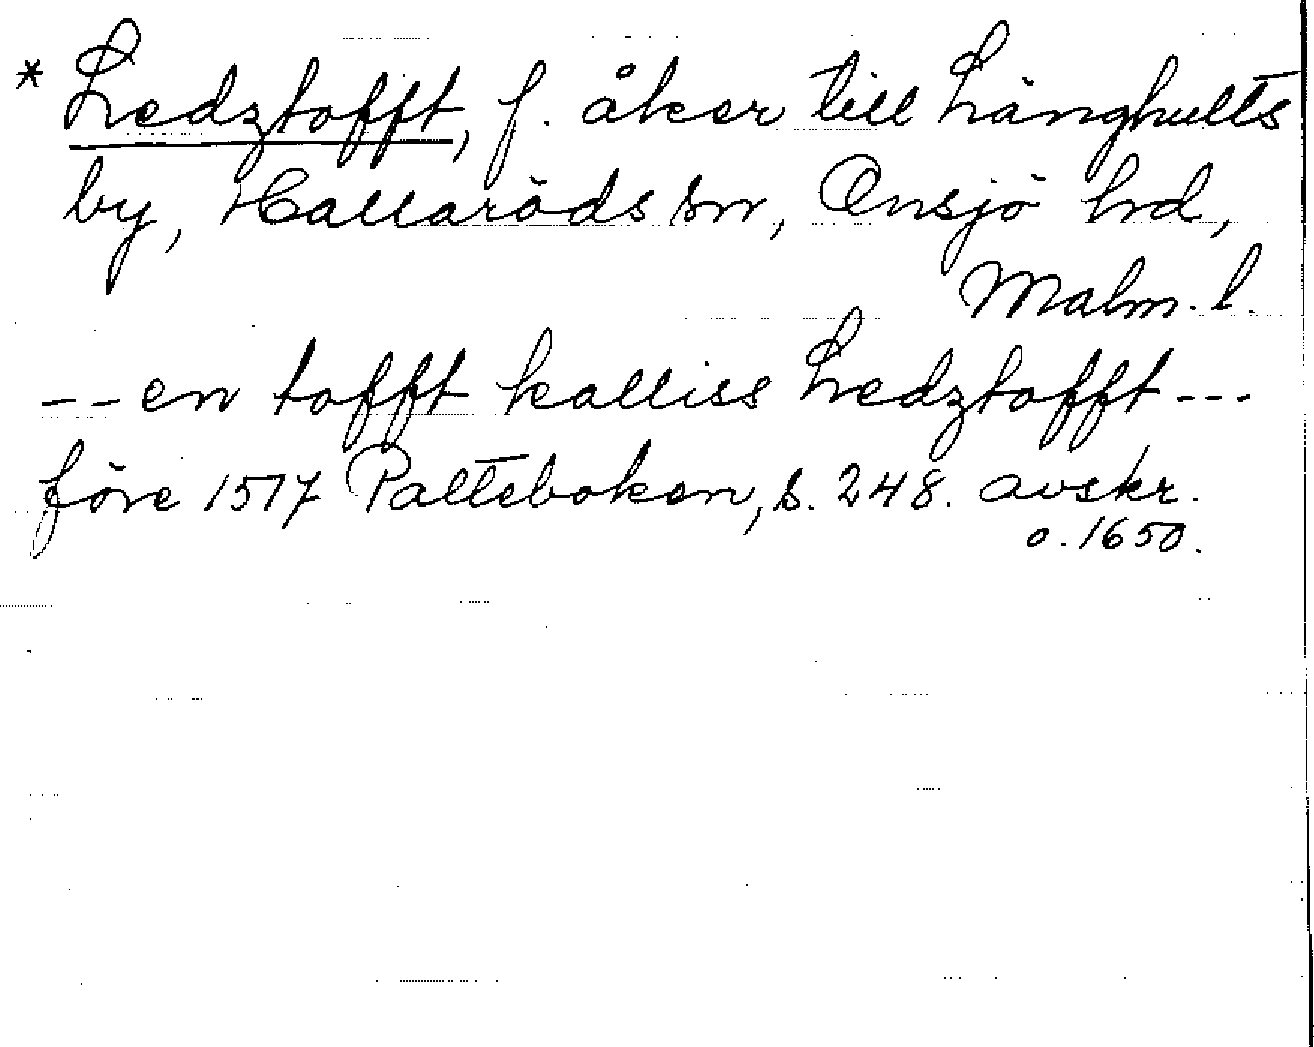 * Ledztofft, f. åker till Långhults
by, Hallaröds sn, Onsjö hrd,
Malm. l.
-- en tofft kalliss Ledztofft ---
före 1517 Palteboken, s. 248. avskr.
o. 1650.